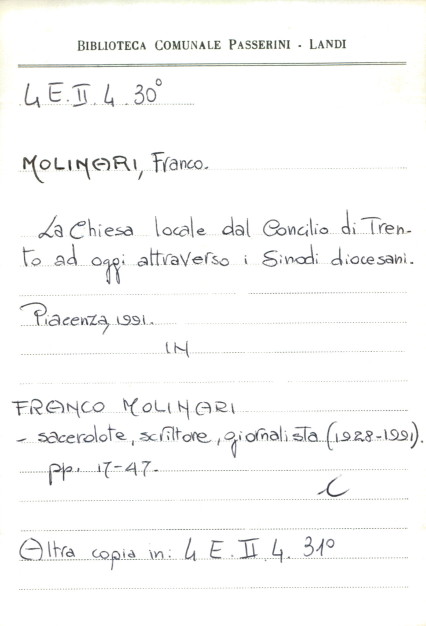 BIBLIOTECA COMUNALE PASSERINI - LANDI
4 E. II. 4. 30°
MOLINARI, Franco.
La Chiesa locale dal Concilio di Tren-
to ad oggi attraverso i Sinodi diocesani.
Piacenza, 1991.
IN
FRANCO MOLINARI
- sacerdote, scrittore, giornalista (1928-1991).
pp. 17-47.
C
Altra copia in: 4 E. II. 4. 31°